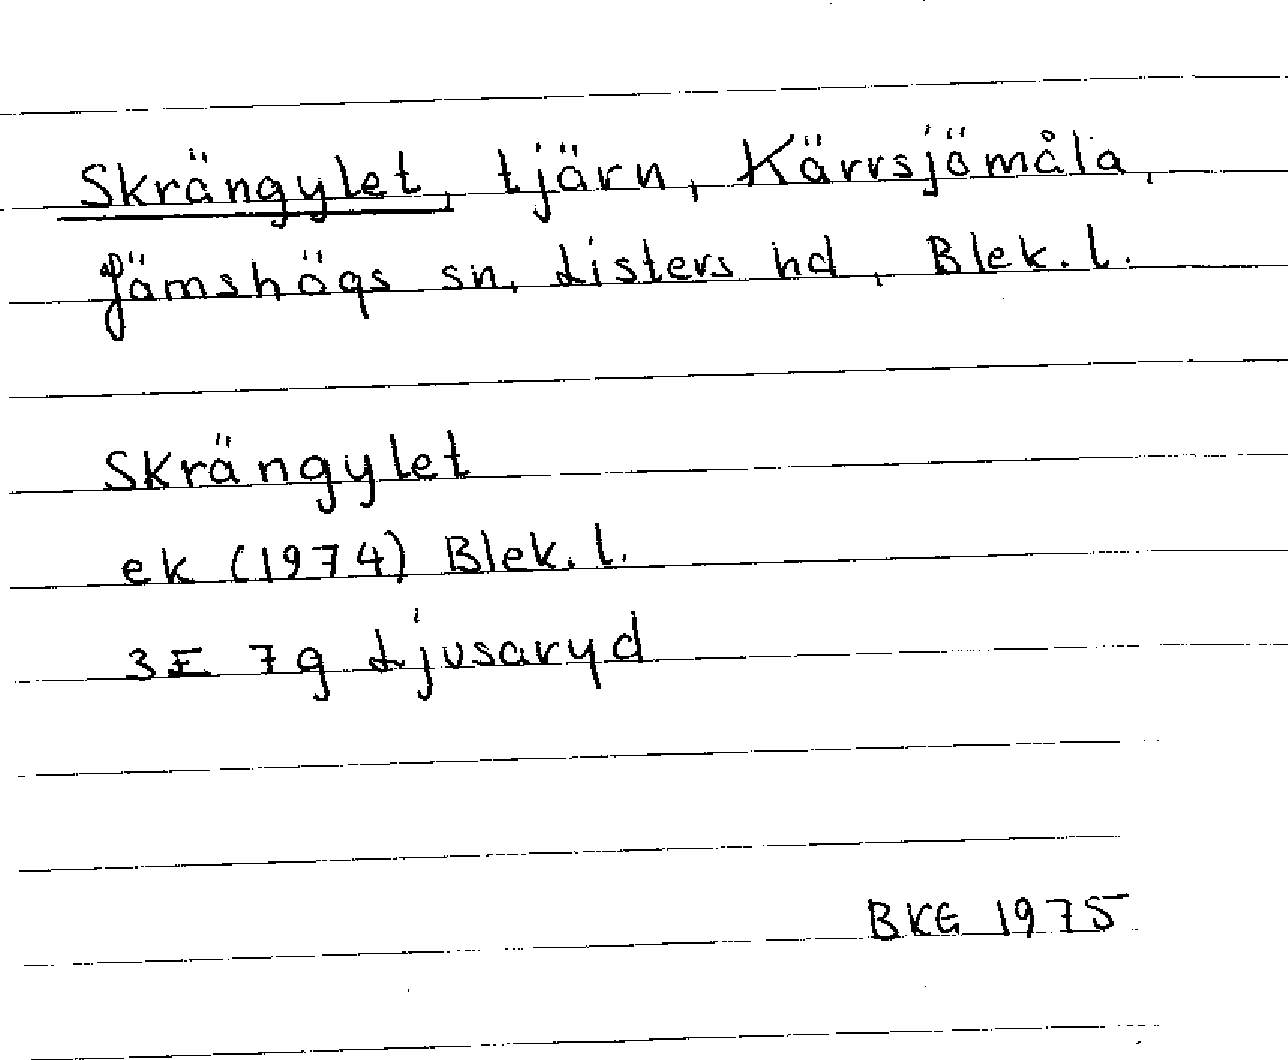 Skrängylet, tjärn, Kärrsjömåla,
Jämshögs sn, Listers hd, Blek. l.
Skrängylet
ek (1974) Blek. l.
3E 7g Ljusaryd
BKG 1975